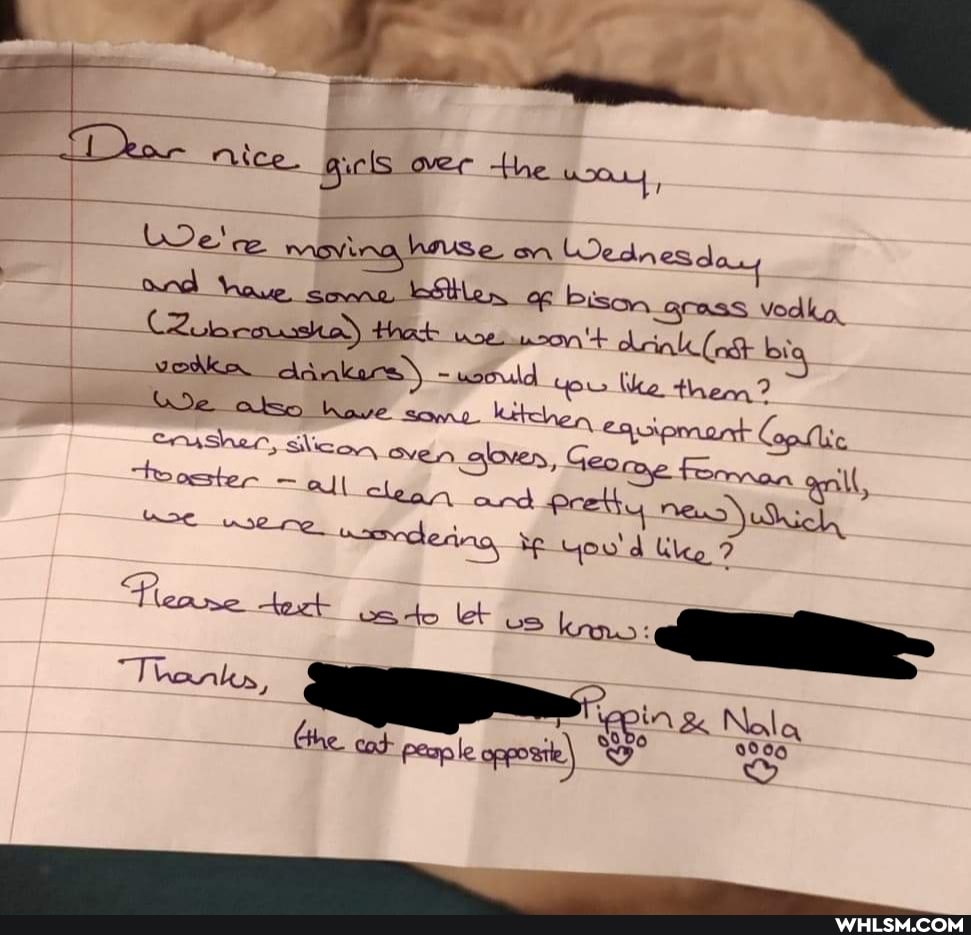 Dear nice girls over the way,
We're moving house on Wednesday
and have some bottles of bison grass vodka
(Zubrowska) that we won't drink (not big
vodka drinkers) - would you like them?
We also have some kitchen equipment (garlic
crusher, silicon oven gloves, George Forman grill,
toaster - all clean and pretty new) which
we were wondering if you'd like?
Please text us to let us know:
Thanks, , Pippin & Nala
(the cat people opposite)
WHLSM.COM